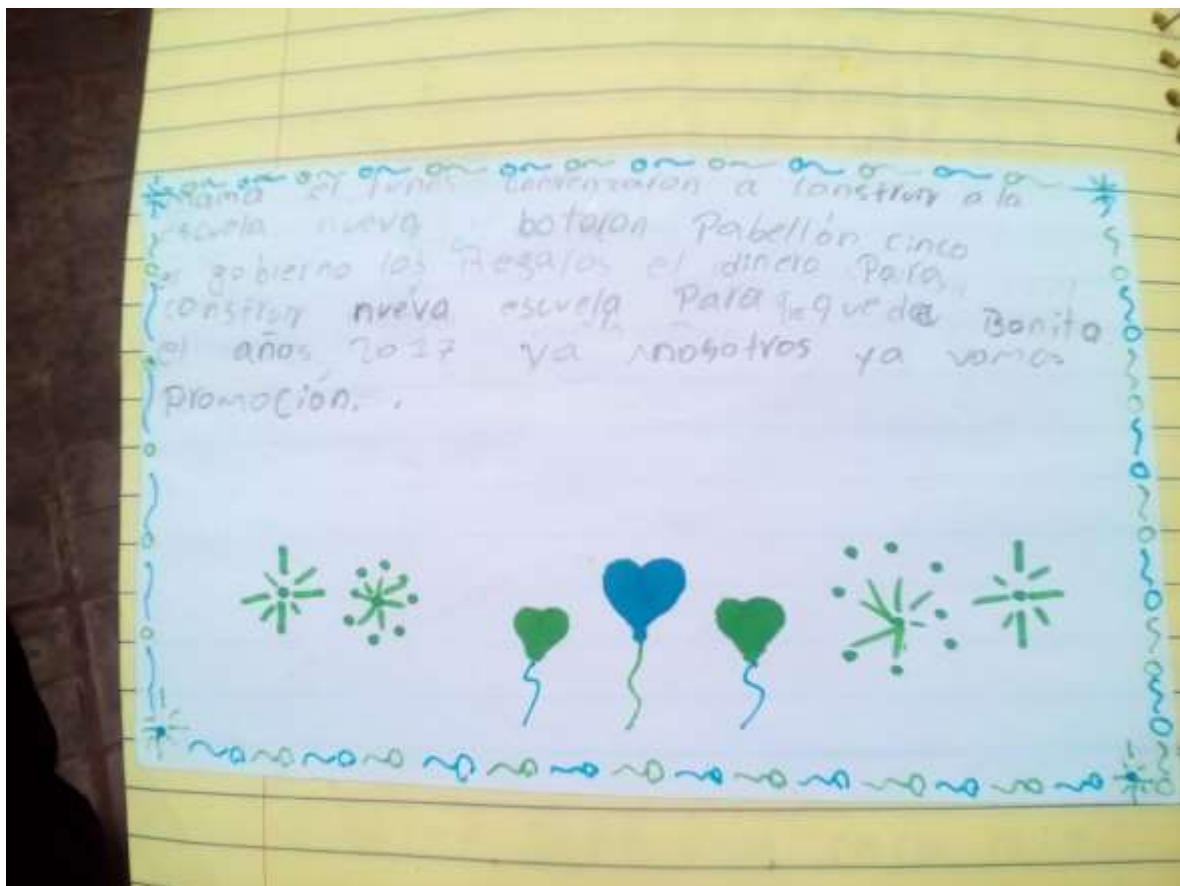 Mamá el lunes comenzaron a construir a la
escuela nueva botaron Pabellón cinco
el gobierno los Regalos el dinero Para
construir nueva escuela Para que quede Bonita
el años 2017 ya nosotros ya vamos
promoción.